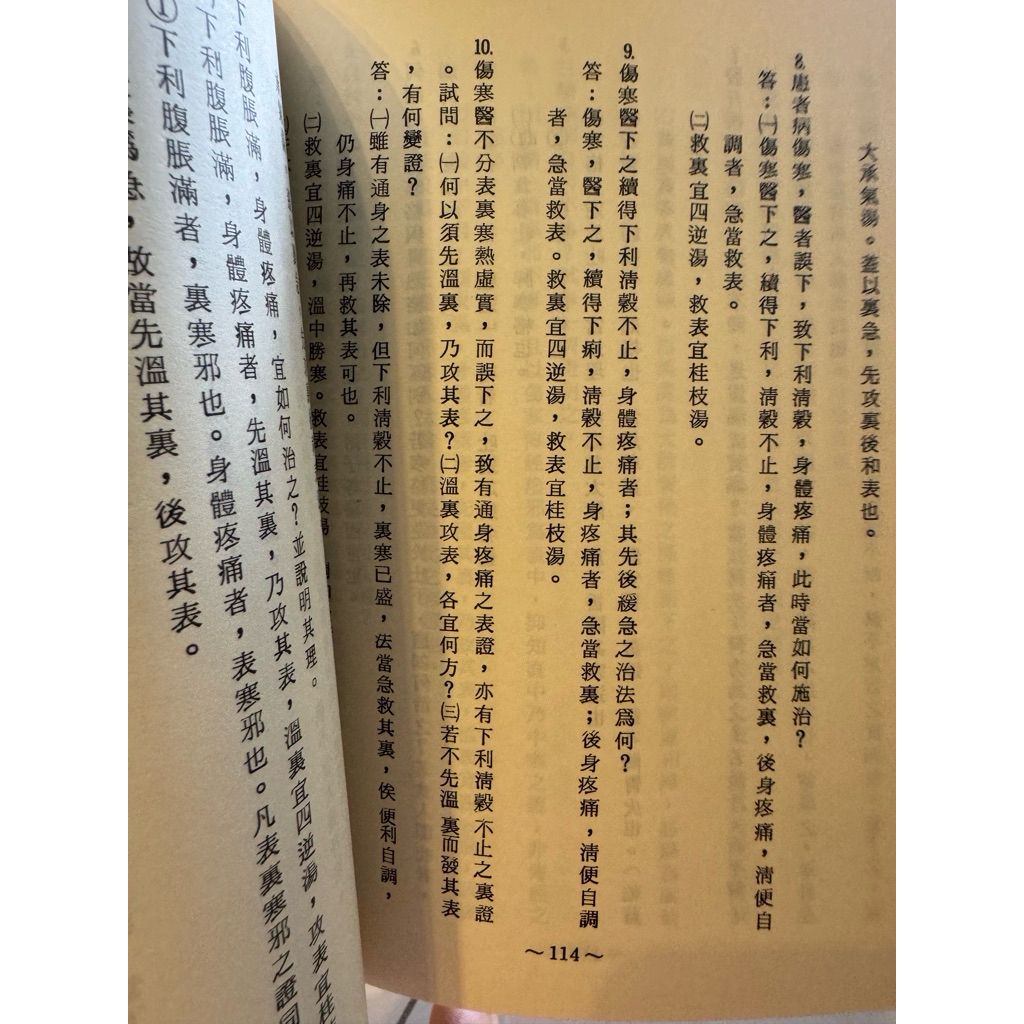 大承氣湯。蓋以裏急，先攻裏後和表也。
8.患者病傷寒，醫者誤下，致下利淸穀，身體疼痛，此時當如何施治？
答：㈠傷寒醫下之，續得下利，淸穀不止，身體疼痛者，急當救裏，後身疼痛，淸便自
調者，急當救表。
㈡救裏宜四逆湯，救表宜桂枝湯。
9.傷寒醫下之續得下利淸穀不止，身體疼痛者；其先後緩急之治法爲何？
答：傷寒，醫下之，續得下痢，淸穀不止，身疼痛者，急當救裏；後身疼痛，淸便自調
者，急當救表。救裏宜四逆湯，救表宜桂枝湯。
10.傷寒醫不分表裏寒熱虛實，而誤下之，致有通身疼痛之表證，亦有下利淸穀不止之裏證
。試問：㈠何以須先溫裏，乃攻其表？㈡溫裏攻表，各宜何方？㈢若不先溫裏而發其表
，有何變證？
答：㈠雖有通身之表未除，但下利淸穀不止，裏寒已盛，法當急救其裏，俟便利自調，
仍身痛不止，再救其表可也。
㈡救裏宜四逆湯，溫中勝寒。救表宜桂枝湯
～114～
下利腹脹滿，身體疼痛，宜如何治之？並說明其理。
下利腹脹滿，身體疼痛者，先溫其裏，乃攻其表，溫裏宜四逆湯，攻表宜桂
①下利腹脹滿者，裏寒邪也。身體疼痛者，表寒邪也。凡表裏寒邪之證同
爲急，故當先溫其裏，後攻其表。